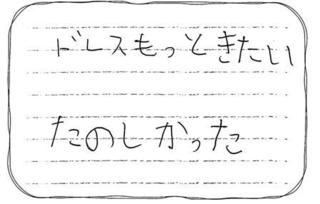 ドレスもっときたい
たのしかった